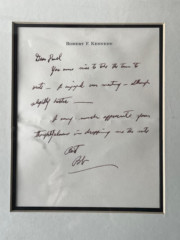 ROBERT F. KENNEDY
Dear
You were nice to take the time to
write - I enjoyed our meeting - although
slightly
I very much appreciate your
thoughtfulness in dropping me the note
Best
Bob